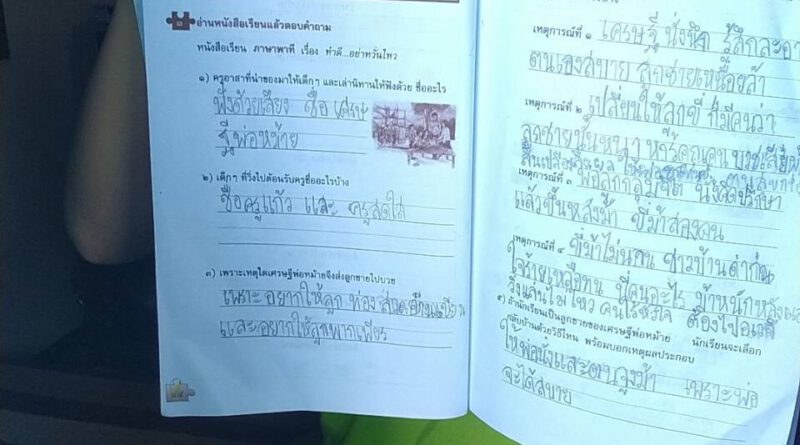 ๓ อ่านหนังสือเรียนแล้วตอบคำถาม
หนังสือเรียน ภาษาพาที เรื่อง ทำดี...อย่าหวั่นไหว
๑) ครูอาสาที่นำของมาให้เด็กๆ และเล่านิทานให้ฟังด้วย ชื่ออะไร
ฟังด้วยเสียง ชื่อ เศรษ
ฐีพ่อหม้าย
๒) เด็กๆ ที่วิ่งไปต้อนรับครูชื่ออะไรบ้าง
ชื่อครูแก้ว และ ครูสดใส
๓) เพราะเหตุใดเศรษฐีพ่อหม้ายจึงส่งลูกชายไปบวช
เพราะ อยากให้ลูก ท่อง
และอยากให้ลูกพากเพียร
เหตุการณ์ที่ ๑ เศรษฐี นั่งนึก รู้สึกละอา
ตนเองสบาย ลูกชายเหนื่อยล้า
เหตุการณ์ที่ ๒ เปลี่ยนให้ลูกขี่ ก็มีคนว่า
ลูกชายนั้นหนา
เหตุการณ์ที่ ๓ พ่อลูกกลุ้มจิต นั่งคิดปรึกษา
แล้วขึ้นหลังม้า ขี่ม้าสองคน
เหตุการณ์ที่ ๔ ขี่ม้าไม่นาน ชาวบ้านด่าก่น
ใจร้ายเหลือทน มีคนอะไร ม้าหนักหลังแอ
วิ่งแล่นไม่ไหว คนไร้หัวใจ ต้องไป
๕) ถ้านักเรียนเป็นลูกชายของเศรษฐีพ่อหม้าย นักเรียนจะเลือก
กลับบ้านด้วยวิธีไหน พร้อมบอกเหตุผลประกอบ
ให้พ่อนั่งและตนจูงม้า เพราะพ่อ
จะได้สบาย